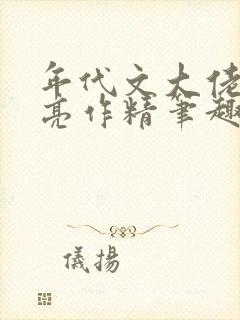 年代文大佬
亮作精笔趣
儀揚